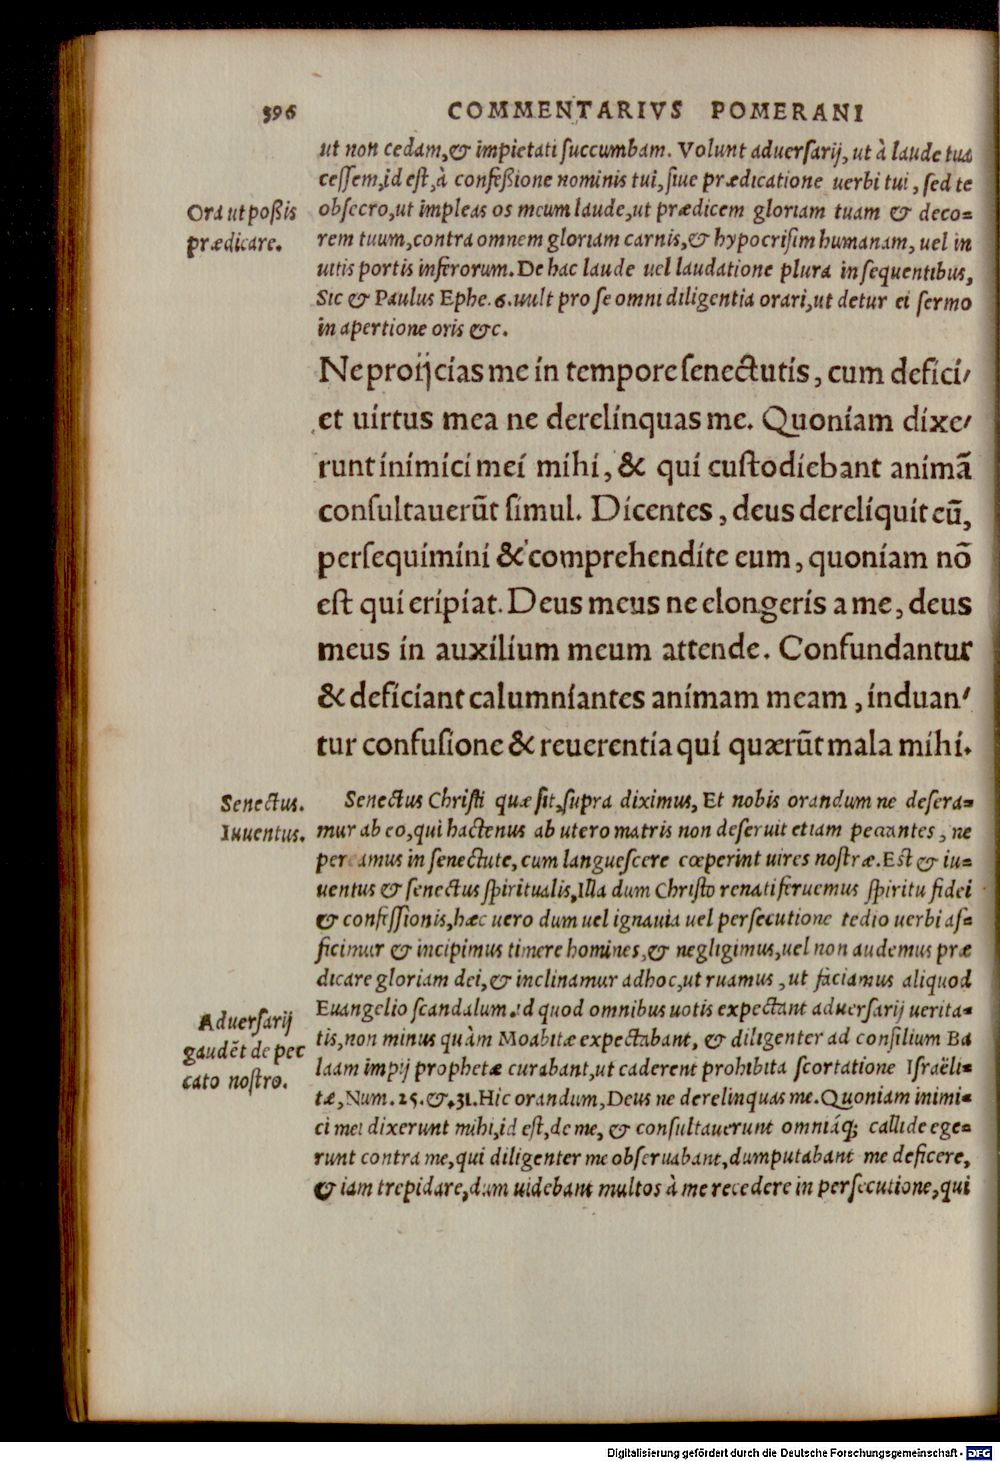 396 COMMENTARIVS POMERANI
ut non cedam, & impietati succumbam. Volunt aduersarij, ut à laude tua
cessem, id est, à confeßione nominis tui, siue prædicatione uerbi tui, sed te
Ora ut poßis
obsecro, ut impleas os meum laude, ut prædicem gloriam tuam & deco=
prædicare.
rem tuum, contra omnem gloriam carnis, & hypocrisim humanam, uel in
uitis portis inferorum. De hac laude uel laudatione plura in sequentibus,
Sic & Paulus Ephe. 6. uult pro se omni diligentia orari, ut detur ei sermo
in apertione oris &c.
Ne proijcias me in tempore senectutis, cum defici/
et uirtus mea ne derelinquas me. Quoniam dixe/
runt inimici mei mihi, & qui custodiebant animã
consultauerũt simul. Dicentes, deus dereliquit eũ,
persequimini & comprehendite eum, quoniam nõ
est qui eripiat. Deus meus ne elongeris a me, deus
meus in auxilium meum attende. Confundantur
& deficiant calumniantes animam meam, induan/
tur confusione & reuerentia qui quærũt mala mihi.
Senectus.
Senectus Christi quæ sit, supra diximus, Et nobis orandum ne desera=
Iuuentus.
mur ab eo, qui hactenus ab utero matris non deseruit etiam peccantes, ne
pereamus in senectute, cum languescere cœperint uires nostræ. Est & iu=
uentus & senectus spiritualis, Illa dum Christo renati feruemus spiritu fidei
& confessionis, hæc uero dum uel ignauia uel persecutione tedio uerbi af=
ficimur & incipimus timere homines, & negligimus, uel non audemus præ
dicare gloriam dei, & inclinamur ad hoc, ut ruamus, ut faciamus aliquod
Euangelio scandalum. id quod omnibus uotis expectant aduersarij uerita=
Aduersarij
gaudẽt de pec
cato nostro.
tis, non minus quàm Moabitæ expectabant, & diligenter ad consilium Ba
laam impij prophetæ curabant, ut caderent prohibita scortatione Israëli=
tæ, Num. 25. &. 31. Hic orandum, Deus ne derelinquas me. Quoniam inimi=
ci mei dixerunt mihi, id est, de me, & consultauerunt omniáq; callide ege=
runt contra me, qui diligenter me obseruabant, dum putabant me deficere,
& iam trepidare, dum uidebant multos à me recedere in persecutione, qui
Digitalisierung gefördert durch die Deutsche Forschungsgemeinschaft - DFG